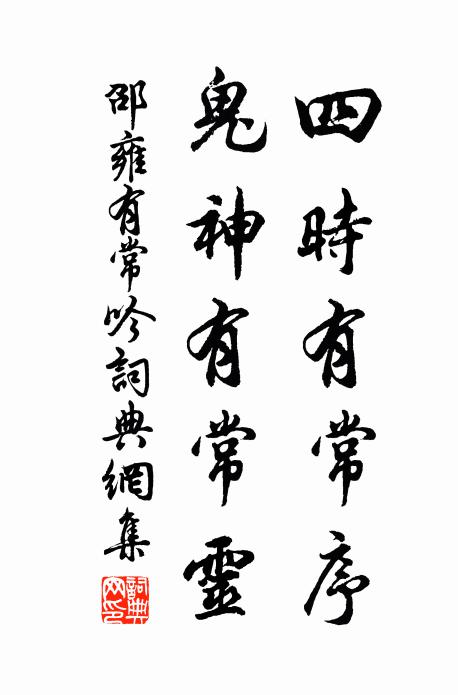 四時有常序
鬼神有常靈
邵雍有常吟詞典網集
詞典網印